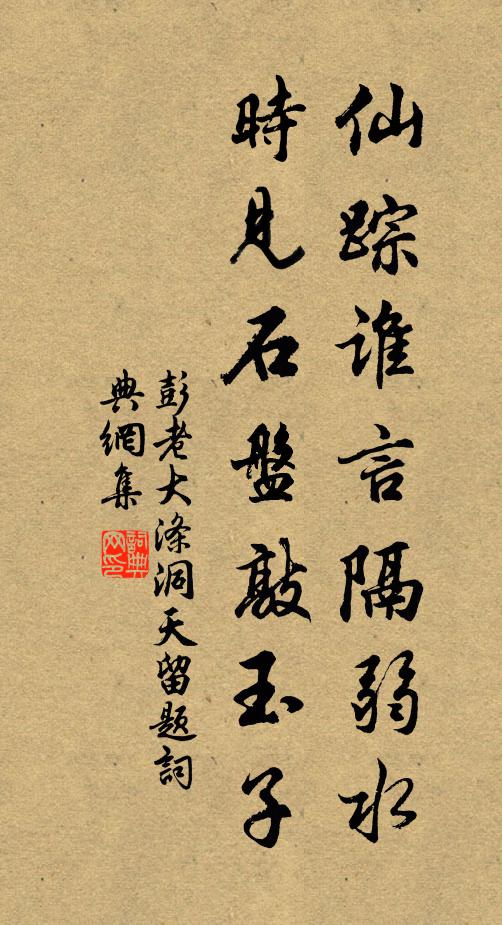 仙踪谁言隔弱水
時見石盤敲玉子
彭老大滌洞天留題詞
典網集
詞典网印